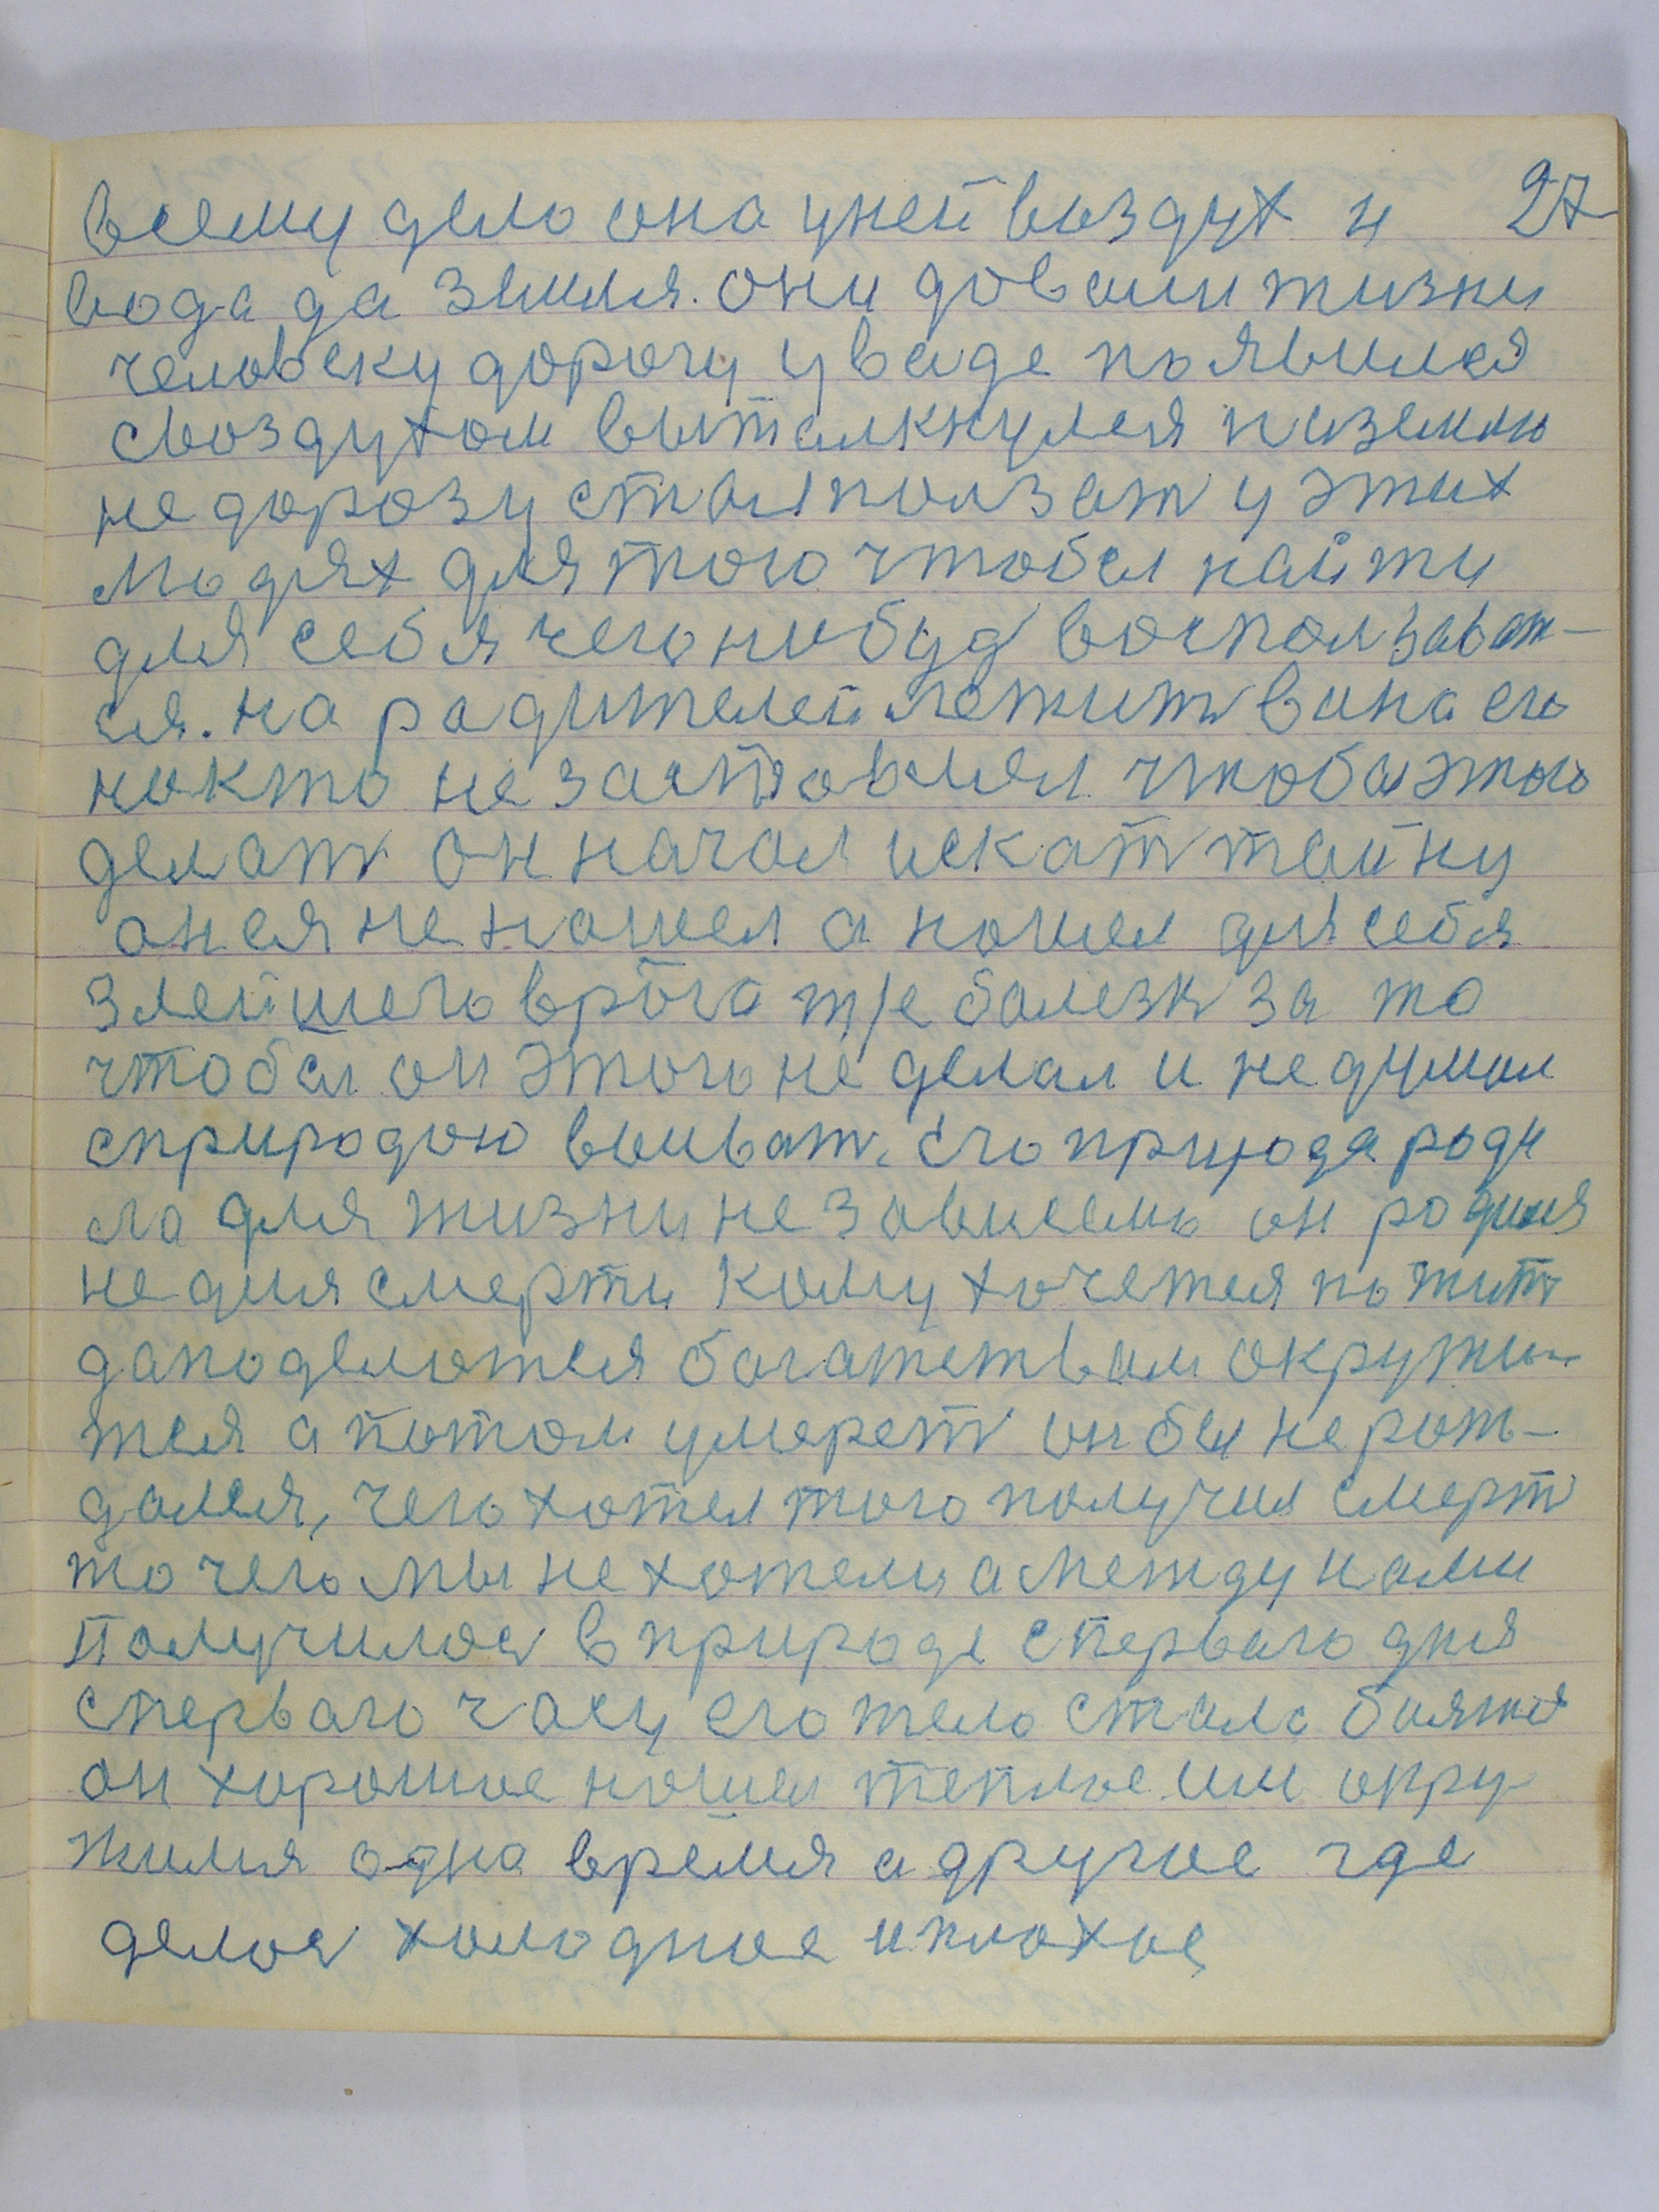 всему дело она уней воздух и 27
вода да земля. они довали жизни
человеку дорогу уваде появился
своздухом вытолкнулся наземлю
не дорозу стал ползат у этих
людях для того чтобы найти
для себя чего нибуд воспользават-
ся. на радителей лежит вина его
никто не заставлял чтобы этого
делат он начал искат тайну
он ея не нашел а нашел для себя
злейшего врага т/е болезн за то
чтобы он этого не делал и не думал
сприродою воиват. его природа роди
ла для жизни независемо он родился
не для смерти кому хочется пожит
даподелотся богатством окружи-
тся а потом умерет он бы не рож-
дался, чего хотел того получил смерт
то чего мы не хотели а между нами
Получилос в природе сперваго дня
сперваго часу его тело стало боятся
он хорошое нашел теплое им окру
жился одна время а другое где
делос холодное иплохое